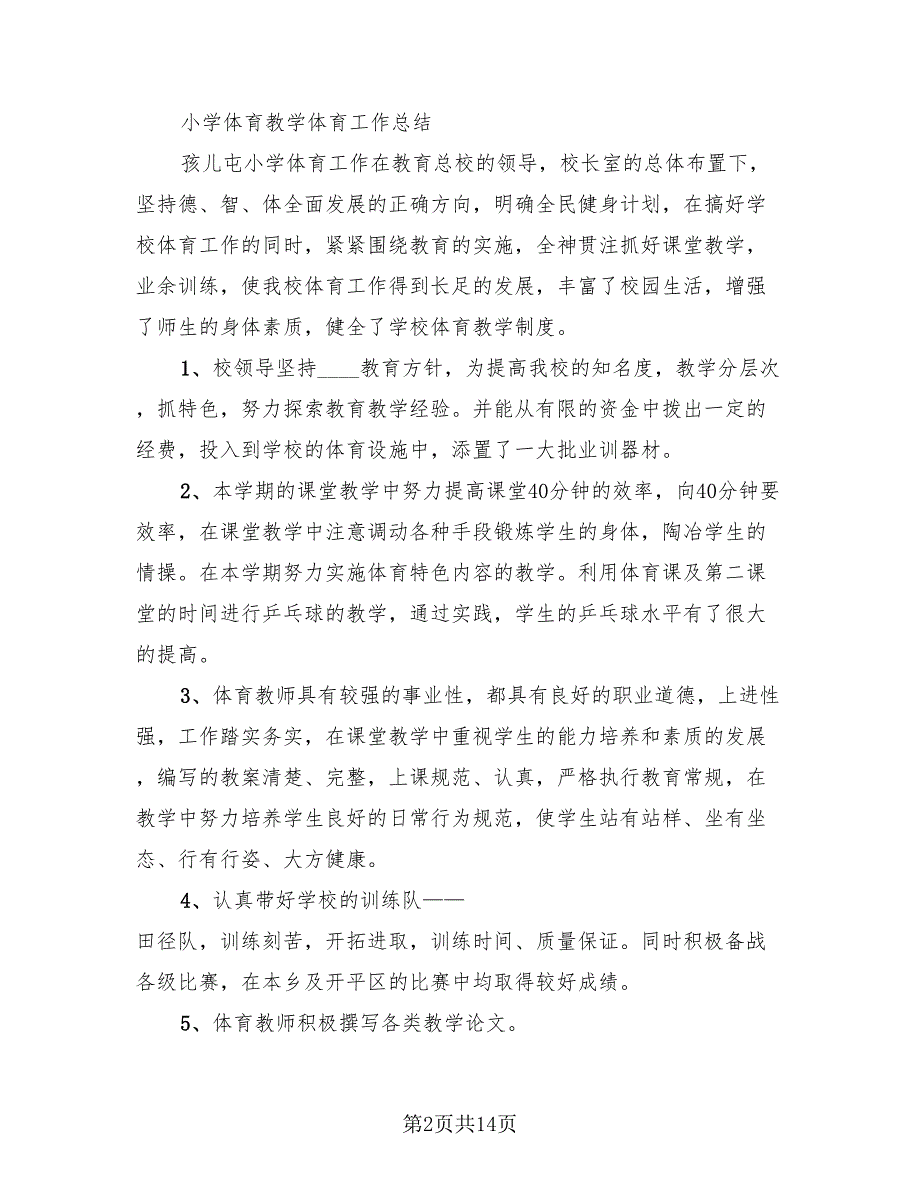 小学体育教学体育工作总结
孩儿屯小学体育工作在教育总校的领导，校长室的总体布置下，
坚持德、智、体全面发展的正确方向，明确全民健身计划，在搞好学
校体育工作的同时，紧紧围绕教育的实施，全神贯注抓好课堂教学，
业余训练，使我校体育工作得到长足的发展，丰富了校园生活，增强
了师生的身体素质，健全了学校体育教学制度。
1、校领导坚持____教育方针，为提高我校的知名度，教学分层次
，抓特色，努力探索教育教学经验。并能从有限的资金中拨出一定的
经费，投入到学校的体育设施中，添置了一大批业训器材。
2、本学期的课堂教学中努力提高课堂40分钟的效率，向40分钟要
效率，在课堂教学中注意调动各种手段锻炼学生的身体，陶冶学生的
情操。在本学期努力实施体育特色内容的教学。利用体育课及第二课
堂的时间进行乒乓球的教学，通过实践，学生的乒乓球水平有了很大
的提高。
3、体育教师具有较强的事业性，都具有良好的职业道德，上进性
强，工作踏实务实，在课堂教学中重视学生的能力培养和素质的发展
，编写的教案清楚、完整，上课规范、认真，严格执行教育常规，在
教学中努力培养学生良好的日常行为规范，使学生站有站样、坐有坐
态、行有行姿、大方健康。
4、认真带好学校的训练队——
田径队，训练刻苦，开拓进取，训练时间、质量保证。同时积极备战
各级比赛，在本乡及开平区的比赛中均取得较好成绩。
5、体育教师积极撰写各类教学论文。
第2页共14页